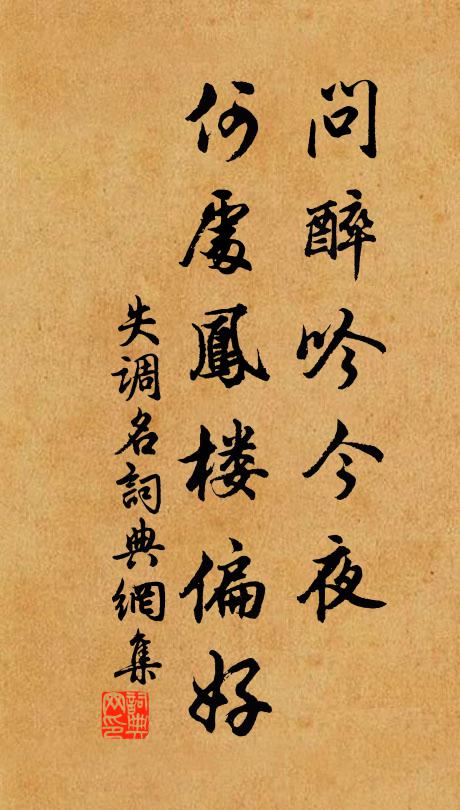 問醉吟今夜
何處鳳楼偏好
失调名詞典網集
詞典网印